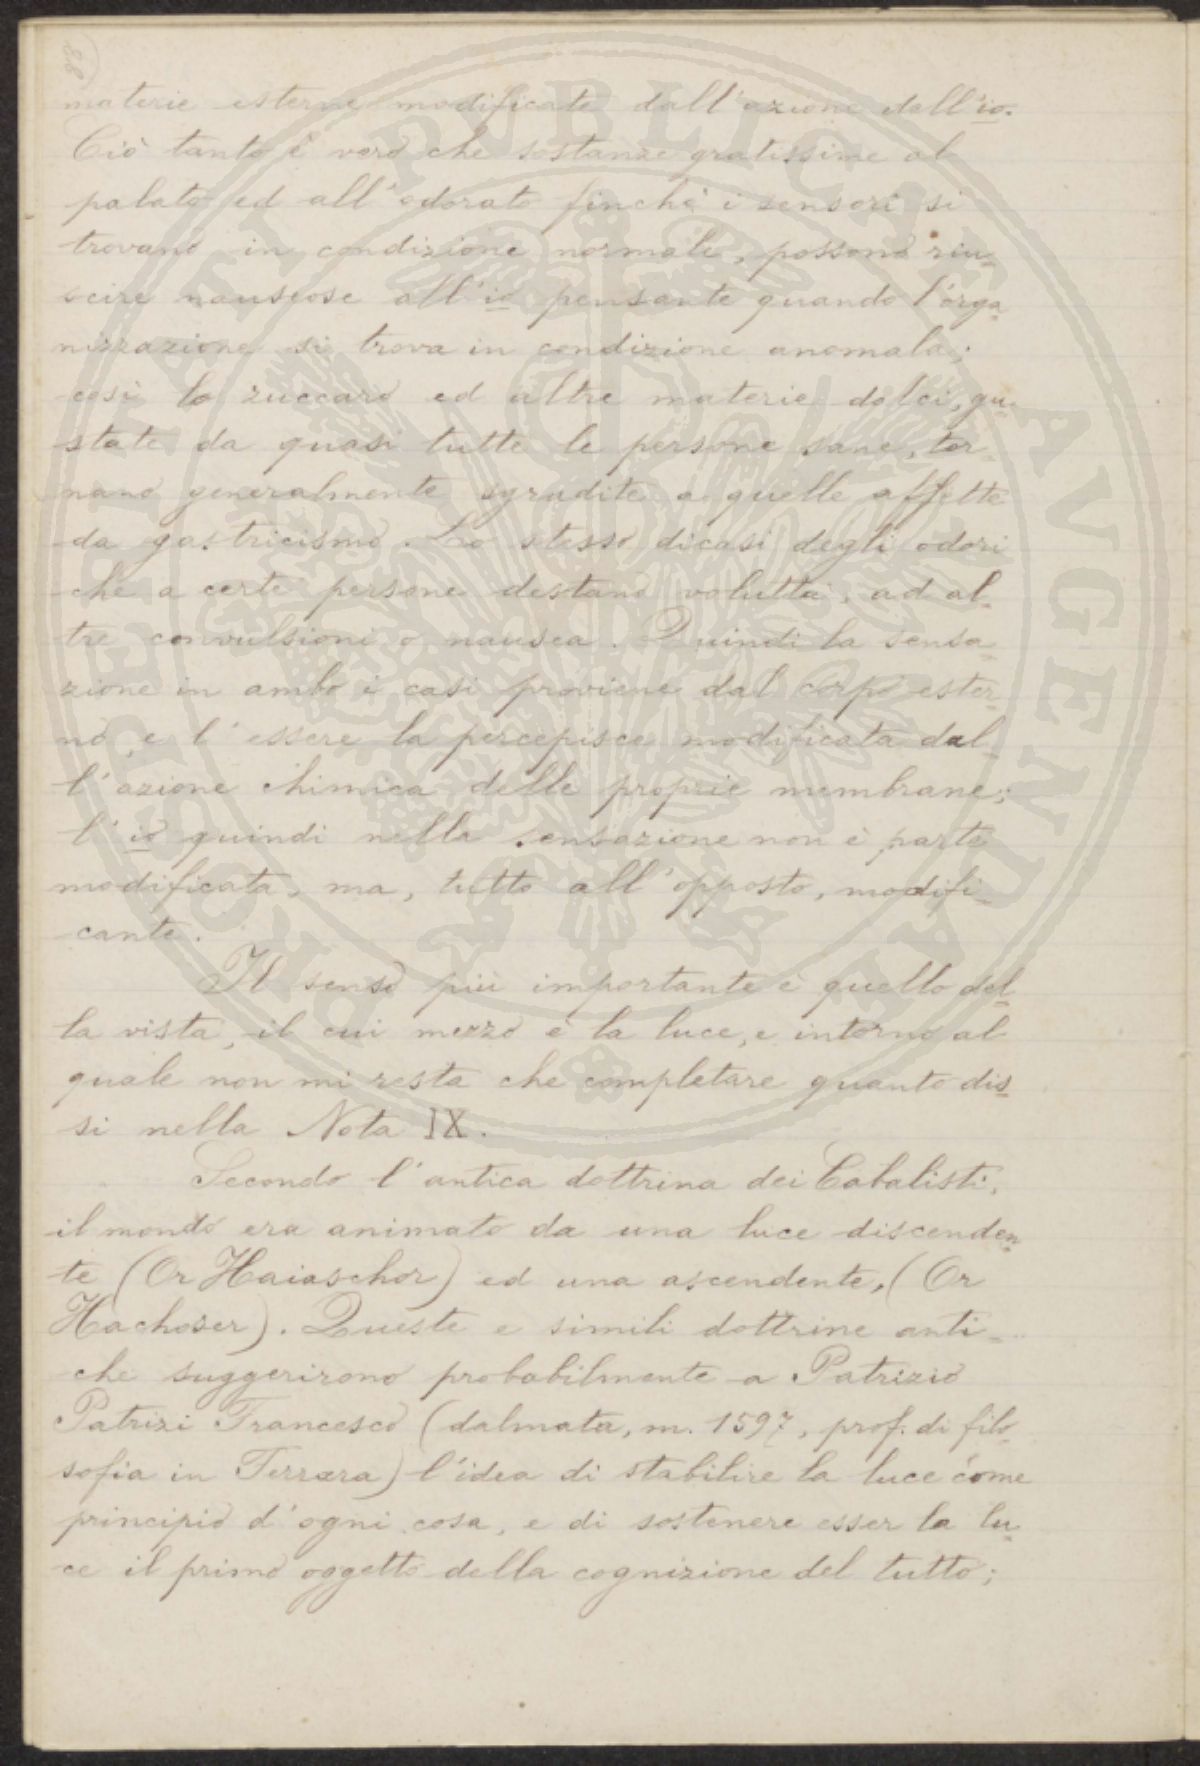 28
materie esterne modificate dall'azione dell'io.
Ciò tanto è vero che sostanze gratissime al
palato ed all'odorato finchè i sensori si
trovano in condizione normale, possono riu-
scire nauseose all'io pensante quando l'orga-
nizzazione si trova in condizione anomala;
così lo zuccaro ed altre materie dolci, gu-
state da quasi tutte le persone sane, tor-
nano generalmente sgradite a quelle affette
da gastricismo. Lo stesso dicasi degli odori
che a certe persone destano voluttà, ad al-
tre convulsioni o nausea. Quindi la sensa-
zione in ambo i casi proviene dal corpo ester-
no, e l'essere la percepisce modificata dal-
l'azione chimica delle proprie membrane;
l'io quindi nella sensazione non è parte
modificata, ma, tutto all'opposto, modifi-
cante.
Il senso più importante è quello del-
la vista, il cui mezzo è la luce, e intorno al
quale non mi resta che completare quanto dis-
si nella Nota IX.
Secondo l'antica dottrina dei Cabalisti,
il mondo era animato da una luce discenden-
te (Or Haiaschor) ed una ascendente, (Or
Hachoser). Queste e simili dottrine anti-
che suggerirono probabilmente a Patrizio
Patrizi Francesco (dalmata, m. 1597, prof. di filo-
sofia in Ferrara) l'idea di stabilire la luce come
principio d'ogni cosa, e di sostenere esser la lu-
ce il primo oggetto della cognizione del tutto;
PVBLICAE AVGENDAE